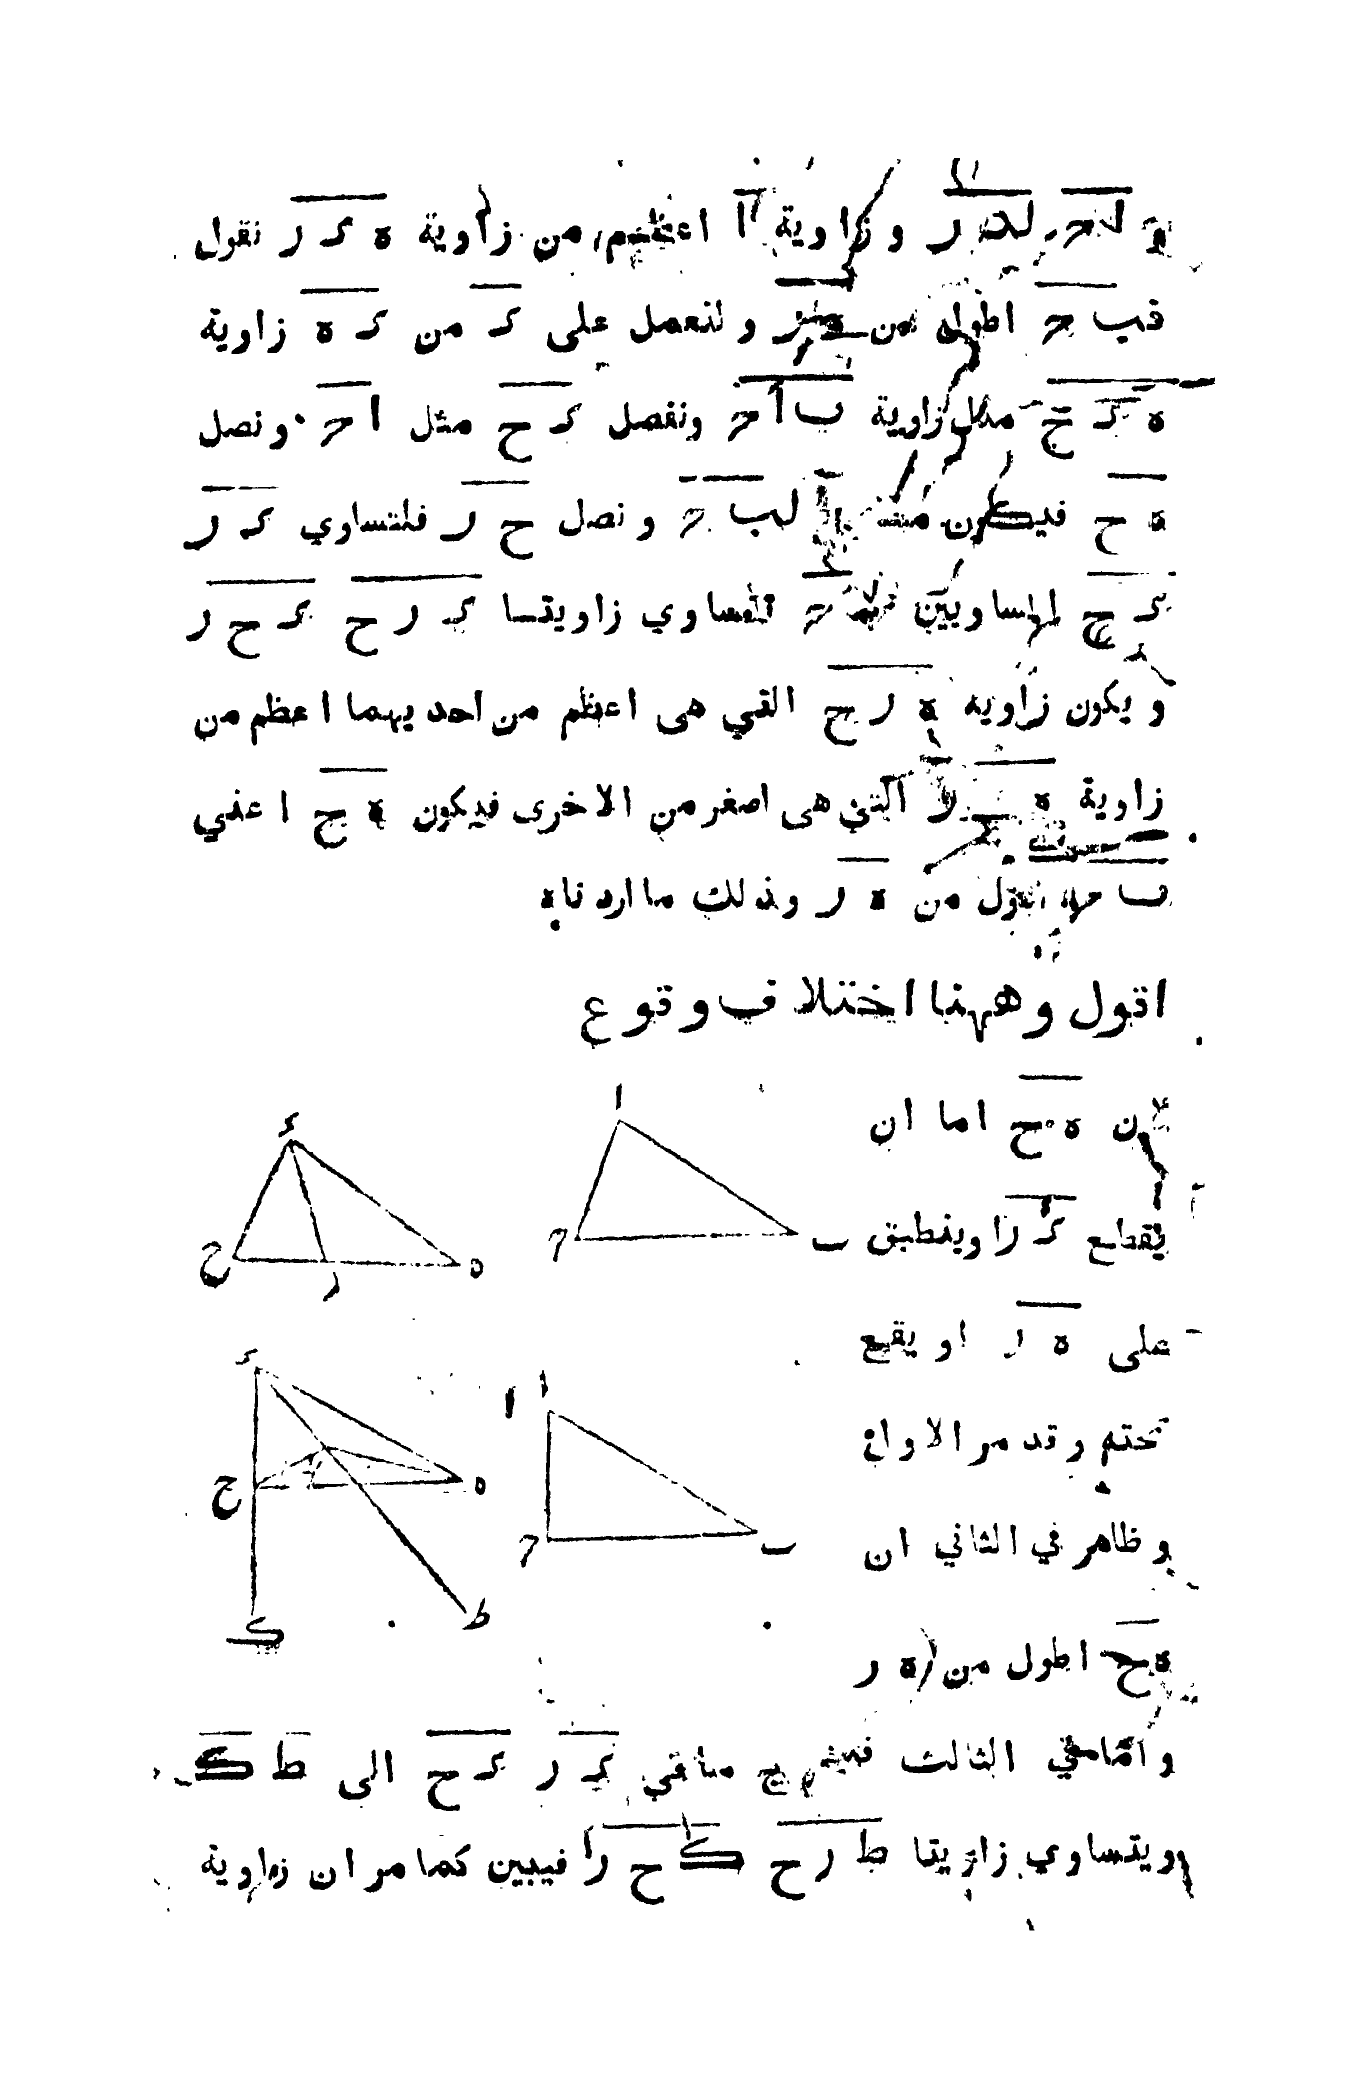 و ا حـ لد ر و زاوية ا اعظم من زاوية ه د ر نقول
فب حـ اطول من ه ر ولنعمل على د من د ه زاوية
ه د ح مثل زاوية ب ا حـ ونفصل د ح مثل ا حـ ونصل
ه ح فيكون لب حـ ونصل ح ر فلتساوي د ر
د ح لمساويين تتساوي زاويتا د ر ح د ح ر
ويكون زاوية ه ر ح التي هى اعظم من احديهما اعظم من
زاوية ه ح ر التي هى اصغر من الاخرى فيكون ه ح اعني
ب حـ اطول من ه ر وذلك ما اردناه
اقول وههنا اختلاف وقوع
لان ه ح اما ان
يقطع د ر او ينطبق
على ه ر او يقع
تحته وقد مر الاول
وظاهر في الثاني ان
ه ح اطول من ه ر
واما في الثالث د ر د ح الى ط ك
ويتساوي زاويتا ط ر ح ك ح ر فيبين كما مر ان زاوية
ا
ب
حـ
د
ح
ر
ه
ا
ب
حـ
د
ح
ر
ه
ك
ط